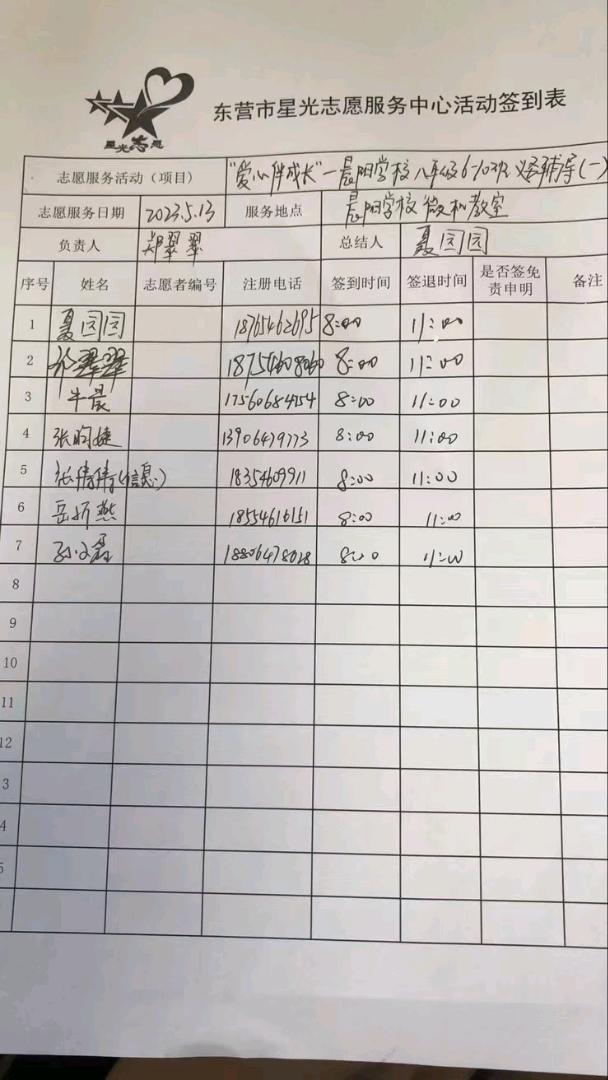 星光志愿
东营市星光志愿服务中心活动签到表
志愿服务活动（项目） "爱心伴成长"—晨阳学校八年级6-10班义务辅导(一)
志愿服务日期 2023.5.13 服务地点 晨阳学校微机教室
负责人 郑翠翠 总结人 夏园园
序号 姓名 志愿者编号 注册电话 签到时间 签退时间 是否签免责申明 备注
1 夏园园 18765462695 8:00 11:00
2 翠翠 8:00 11:00
3 牛晨 17560684754 8:00 11:00
4 张昀婕 13906479773 8:00 11:00
5 张倩倩(信息) 18354609911 8:00 11:00
6 岳 燕 18554616151 8:00 11:00
7 孙 磊 18806478028 8:00 11:00
8
9
10
11
12
3
4
5